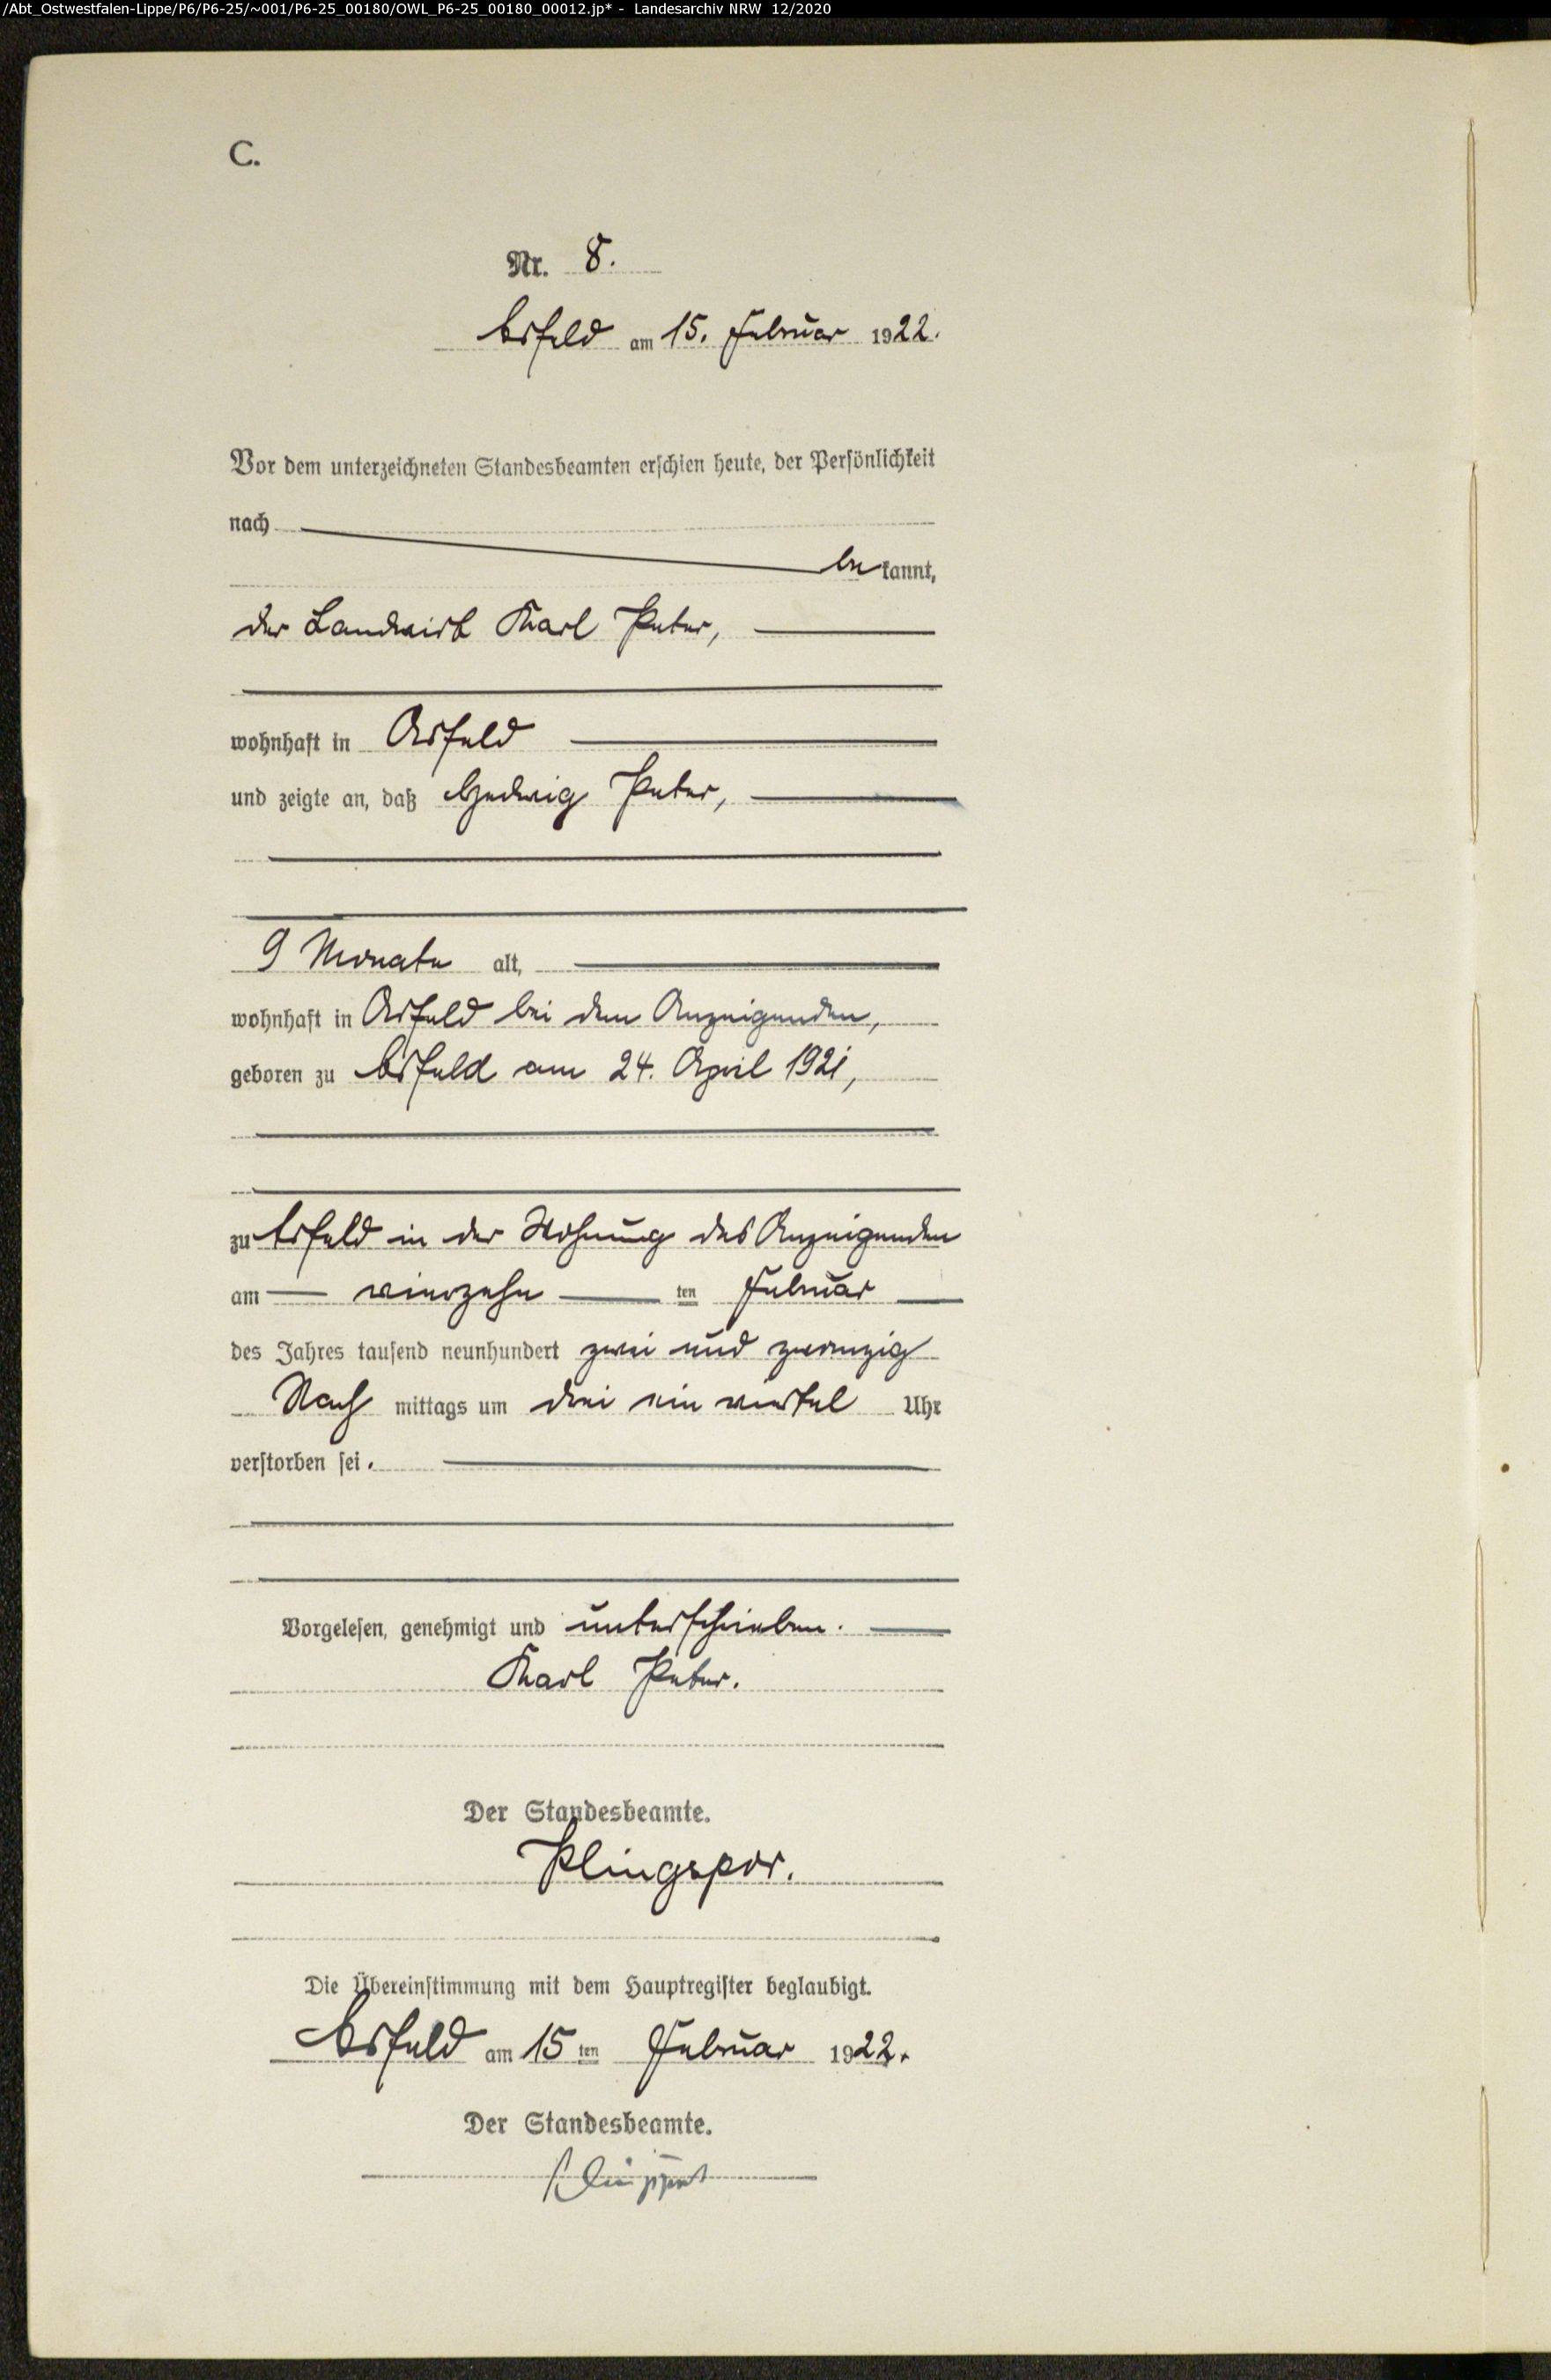 /Abt_Ostwestfalen-Lippe/P6/P6-25/~001/P6-25_00180/OWL_P6-25_00180_00012.jp* - Landesarchiv NRW 12/2020
C.
Nr. 8.
Arfeld am 15. Februar 1922.
Vor dem unterzeichneten Standesbeamten erschien heute, der Persönlichkeit
nach
bekannt,
der Landwirt Karl Peter,
wohnhaft in Arfeld
und zeigte an, daß Hedwig Peter,
9 Monate alt,
wohnhaft in Arfeld bei dem Anzeigenden,
geboren zu Arfeld am 24. April 1921,
zu Arfeld in der Wohnung des Anzeigenden
am vierzehn ten Februar
des Jahres tausend neunhundert zwei und zwanzig
Nach mittags um drei ein viertel Uhr
verstorben sei.
Vorgelesen, genehmigt und unterschrieben.
Karl Peter.
Der Standesbeamte.
Klingspor.
Die Übereinstimmung mit dem Hauptregister beglaubigt.
Arfeld am 15 ten Februar 1922.
Der Standesbeamte.
Klingspor